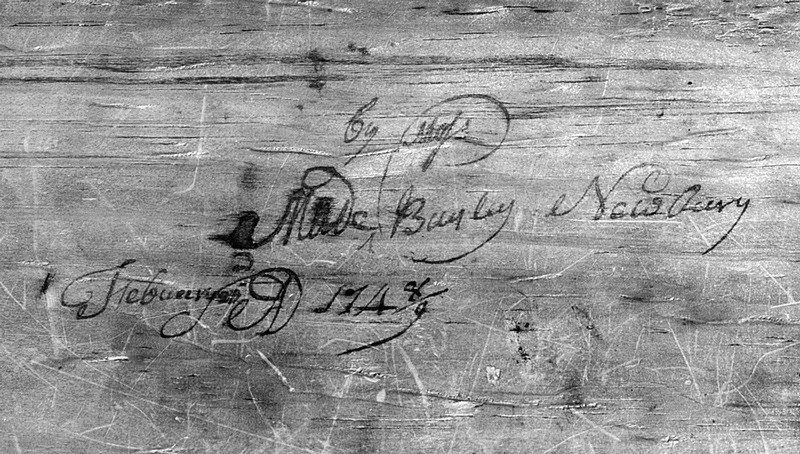 by Moses
Made Bayley Newbury
Febuary AD 1748/9